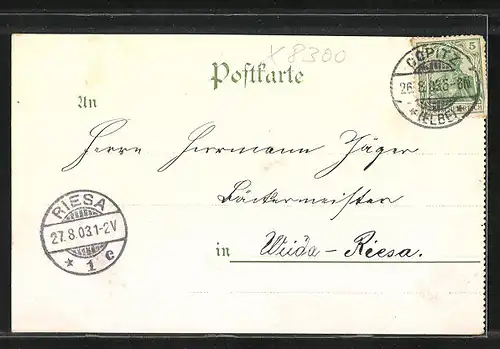 X 8300
COPITZ
5
26.8.03.5-6N.
*(ELBE)*
Postkarte
An
Herrn Herrmann Jäger
Bäckermeister
RIESA
27.8.03.1-2V
* 1 c
in Weida-Riesa.